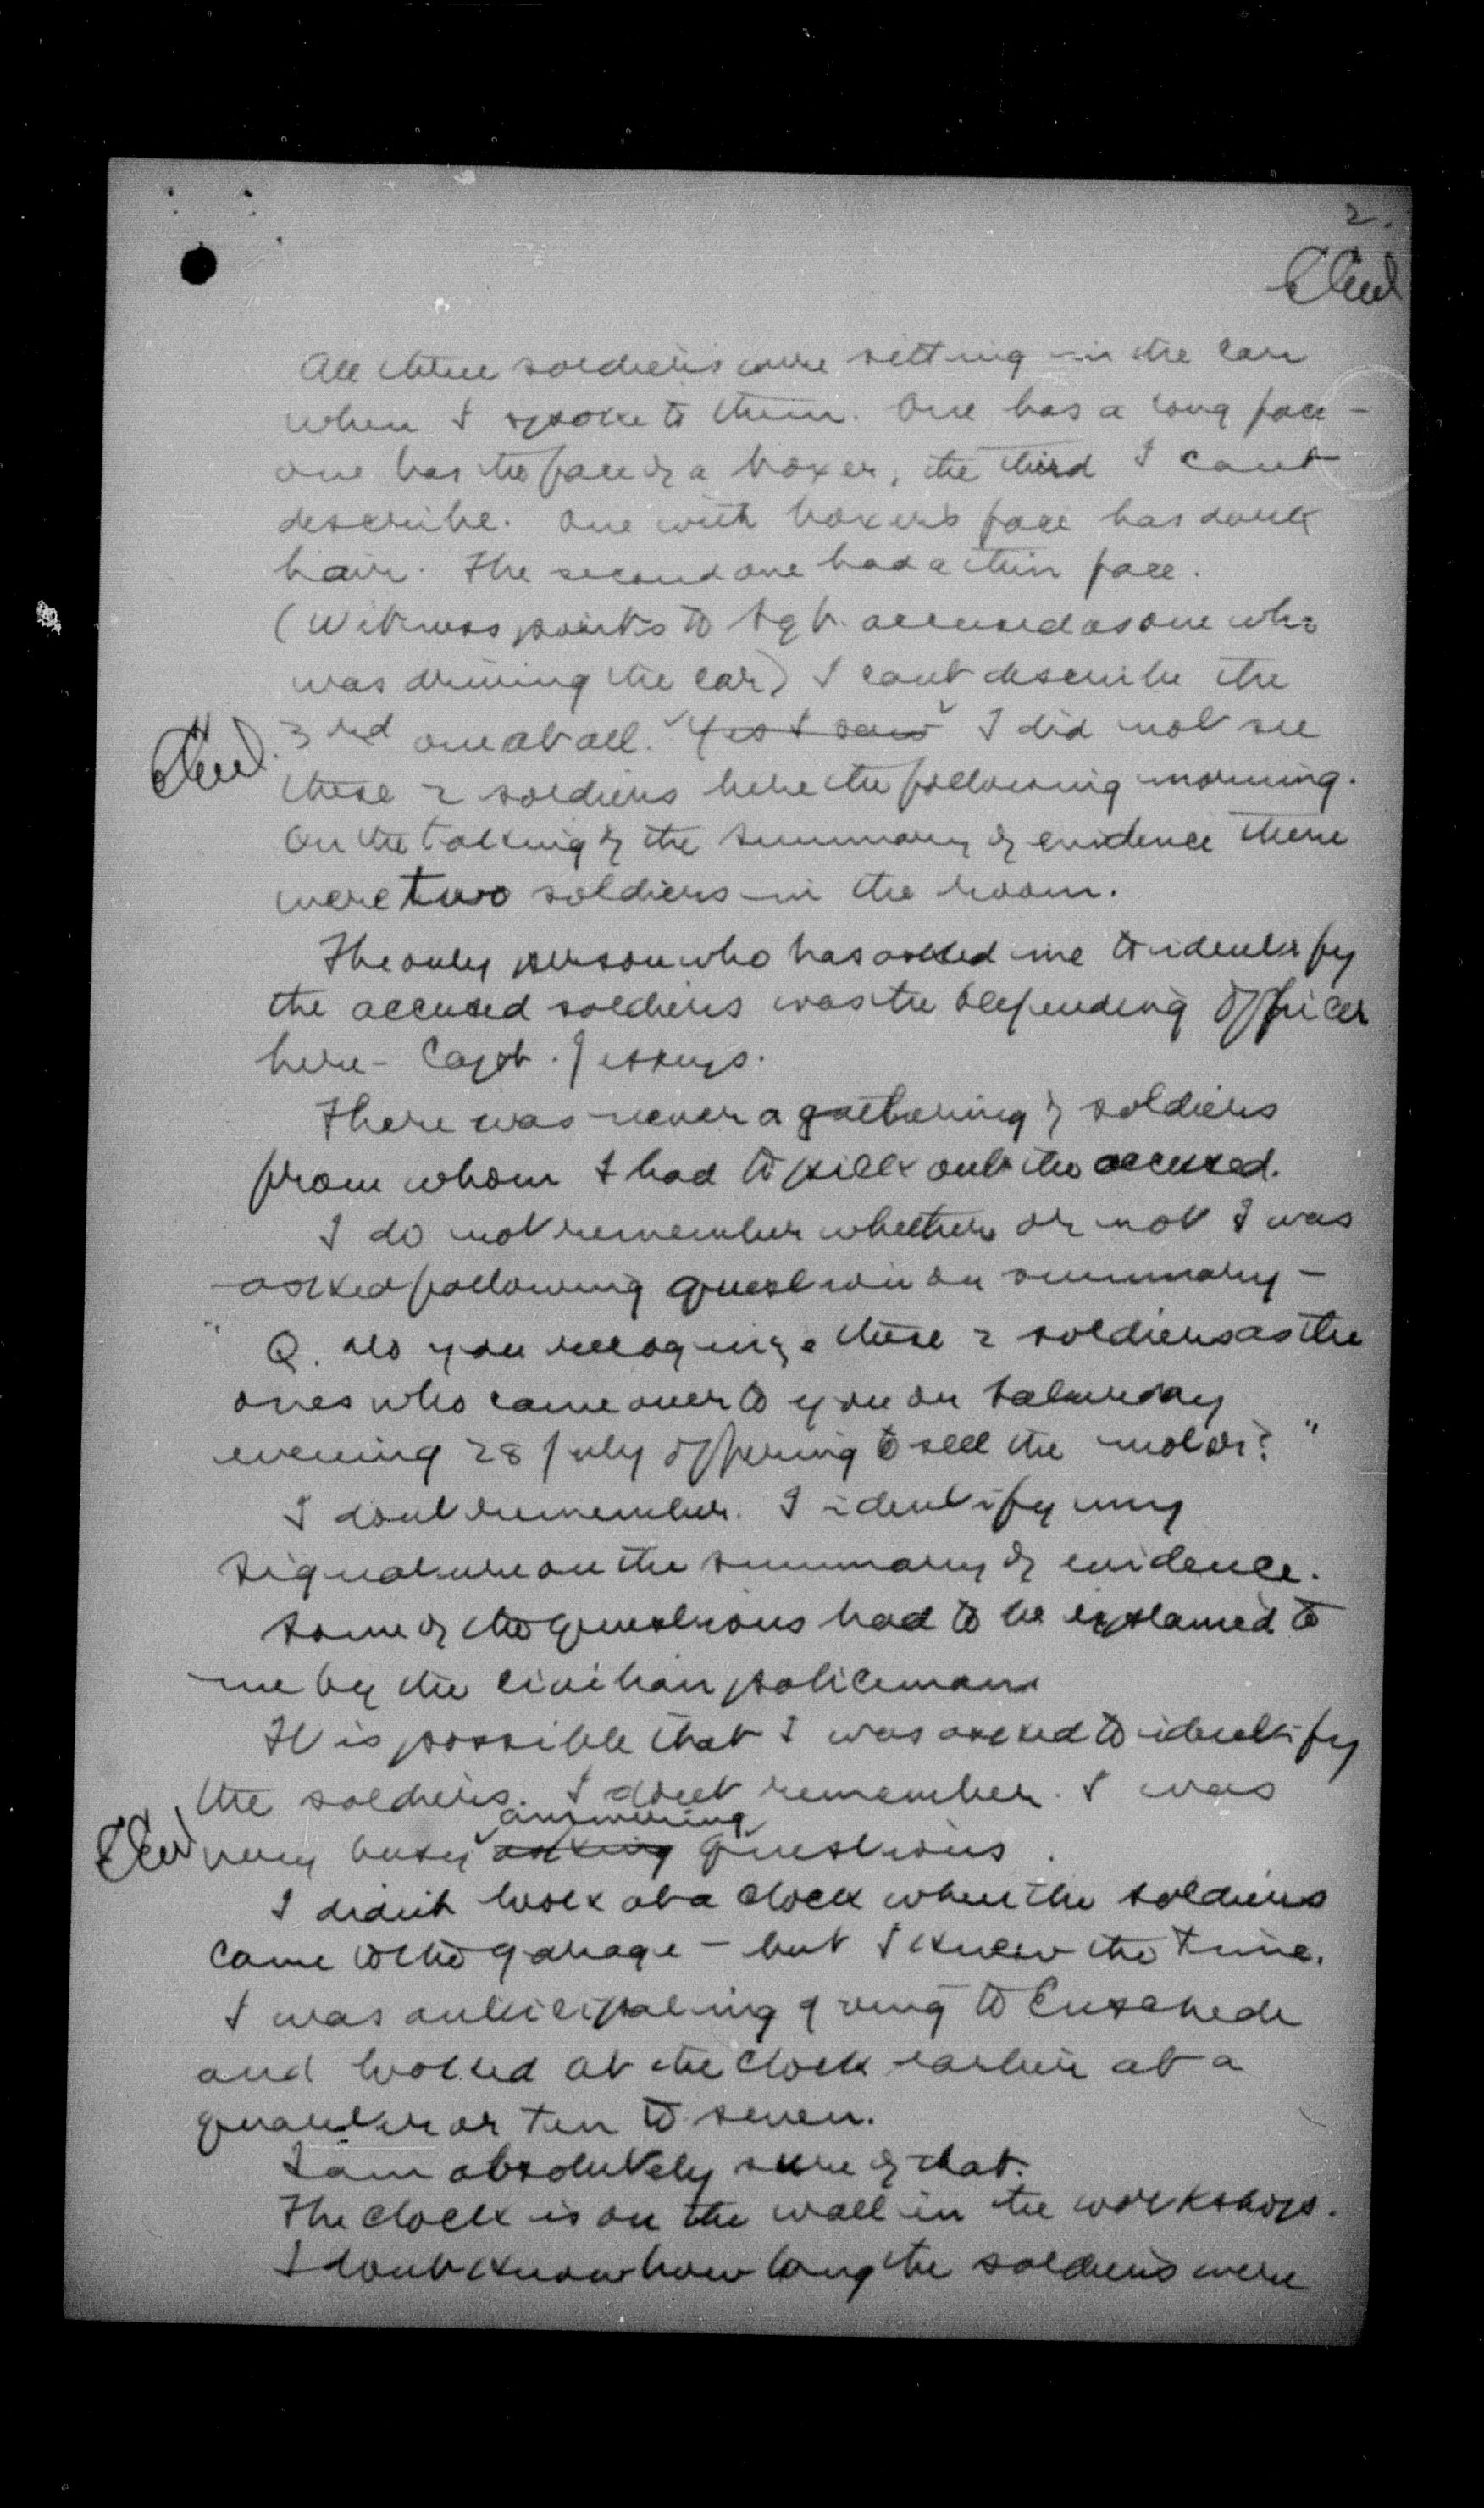 2.
All three soldiers were sitting in the car
when I spoke to them. One has a long face -
one has the face of a boxer, the third I cant
describe. One with boxer's face has dark
hair. The second one had a thin face.
(Witness points to Sgt. accused as one who
was driving the car) I cant describe the
3rd one at all. Yes I saw I did not see
these 2 soldiers here the following morning.
On the taking of the summary of evidence there
were two soldiers in the room.
The only person who has asked me to identify
the accused soldiers was the defending officer
here - Capt.
There was never a gathering of soldiers
from whom I had to pick out the accused.
I do not remember whether or not I was
asked following question on summary -
"Q. Do you recognize these 2 soldiers as the
ones who came over to you on Saturday
evening 28 July offering to sell the motor?"
I dont remember. I identify my
signature on the summary of evidence.
Some of the questions had to be explained to
me by the civilian policeman
It is possible that I was asked to identify
the soldiers. I dont remember. I was
very busy asking answering questions.
I didn't look at a clock when the soldiers
came to the garage - but I knew the time.
I was anticipating going to Enschede
and looked at the clock earlier at a
quarter or ten to seven.
I am absolutely sure of that.
The clock is on the wall in the workshop.
I dont know how long the soldiers were